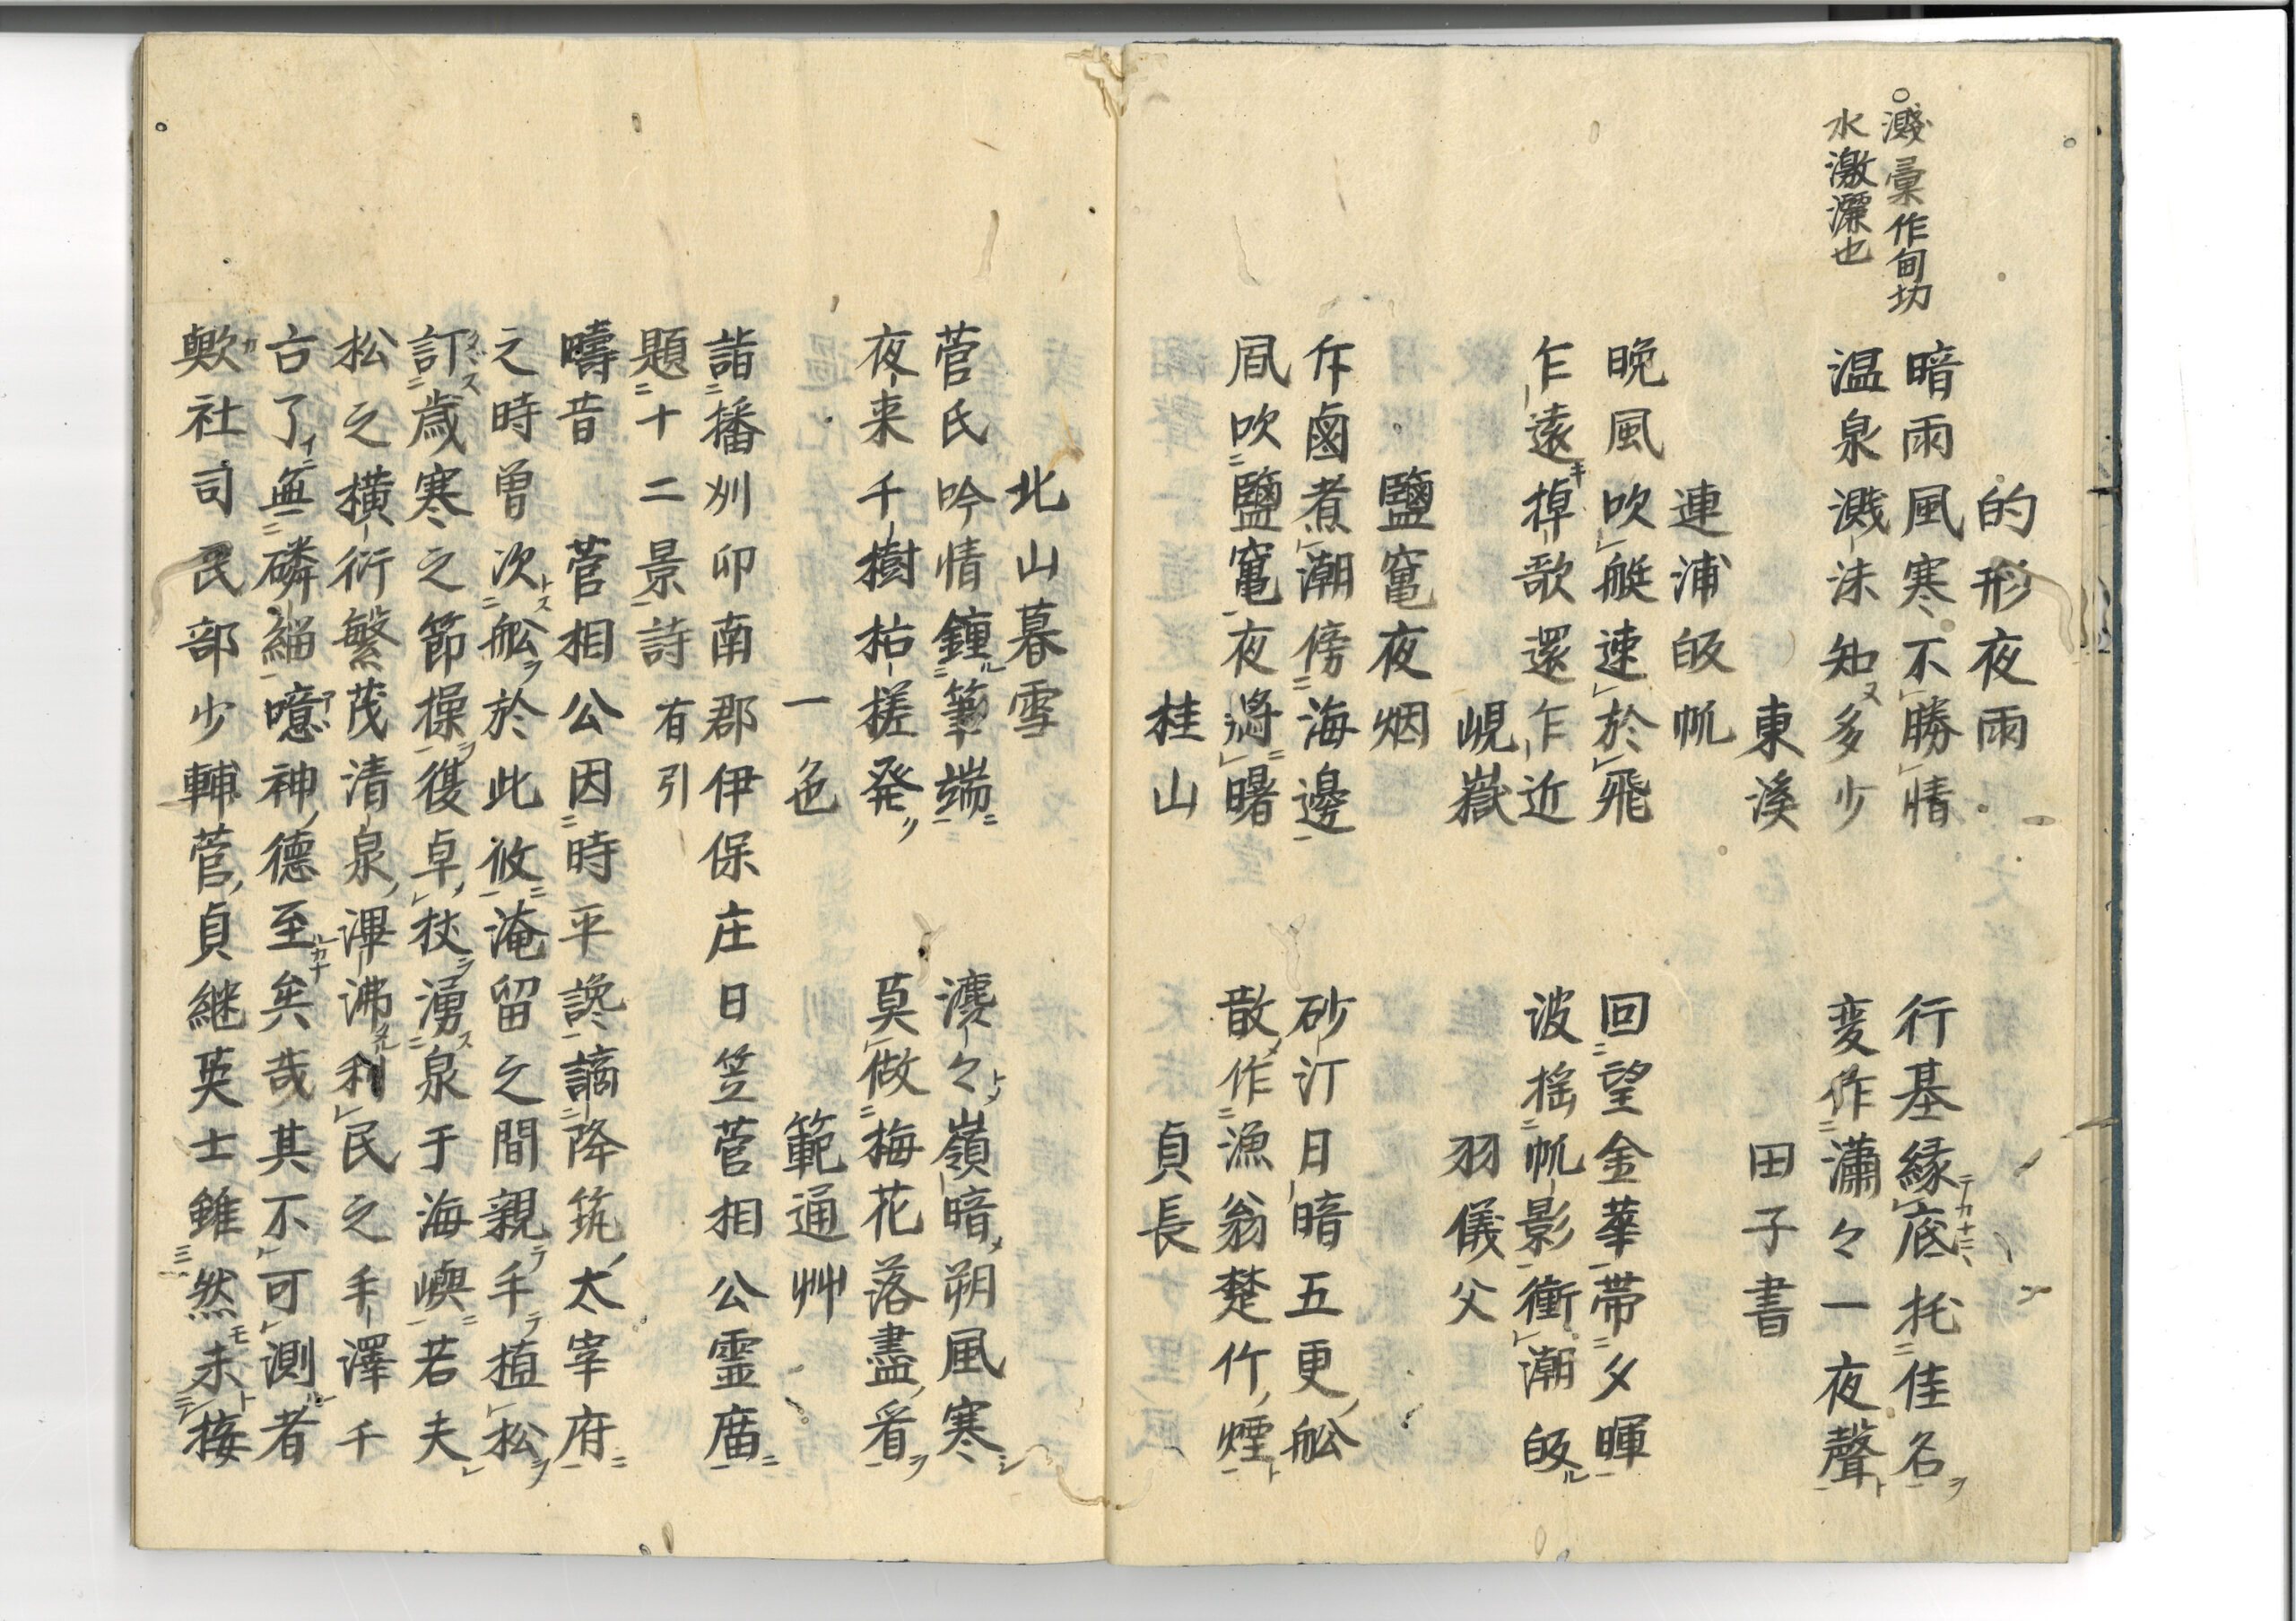 ○濺彙作甸切
水激灑也
的形夜雨
暗雨風寒不勝情　行基縁底托佳名
温泉濺沫知多少　変作瀟々一夜聲
東溪　田子書
連浦皈帆
晩風吹艇速於飛　回望金華帯夕暉
乍遠棹歌還乍近　波揺帆影衝潮皈
峴嶽　羽儀父
鹽竃夜烟
斥鹵煮潮傍海邊　砂汀日暗五更舩
凮吹鹽竃夜將曙　散作漁翁楚竹煙
桂山　貞長
北山暮雪
菅氏吟情鍾筆端　濛々嶺暗朔風寒
夜来千樹枯槎発　莫做梅花落盡看
一色　範通艸
詣播刕印南郡伊保庄日笠菅相公霊庿
題十二景詩 有引
疇昔　菅相公因時平讒謫降筑太宰府
之時曽次舩於此攸淹留之間親手植松
訂歳寒之節操復卓杖湧泉于海嶼若夫
松之横衍繁茂清泉渾沸利民之手澤千
古了無磷緇噫神德至矣哉其不可測者
歟社司民部少輔菅貞継英士雖然未接